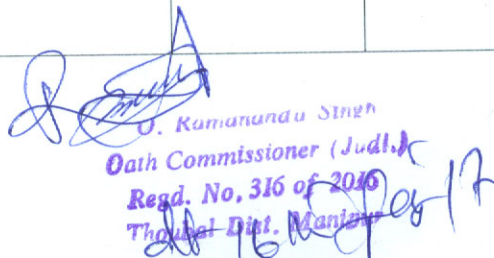 O. Ramananda Singh
Oath Commissioner (Judl.)
Regd. No, 316 of 2016
Thoubal Dist. Manipur